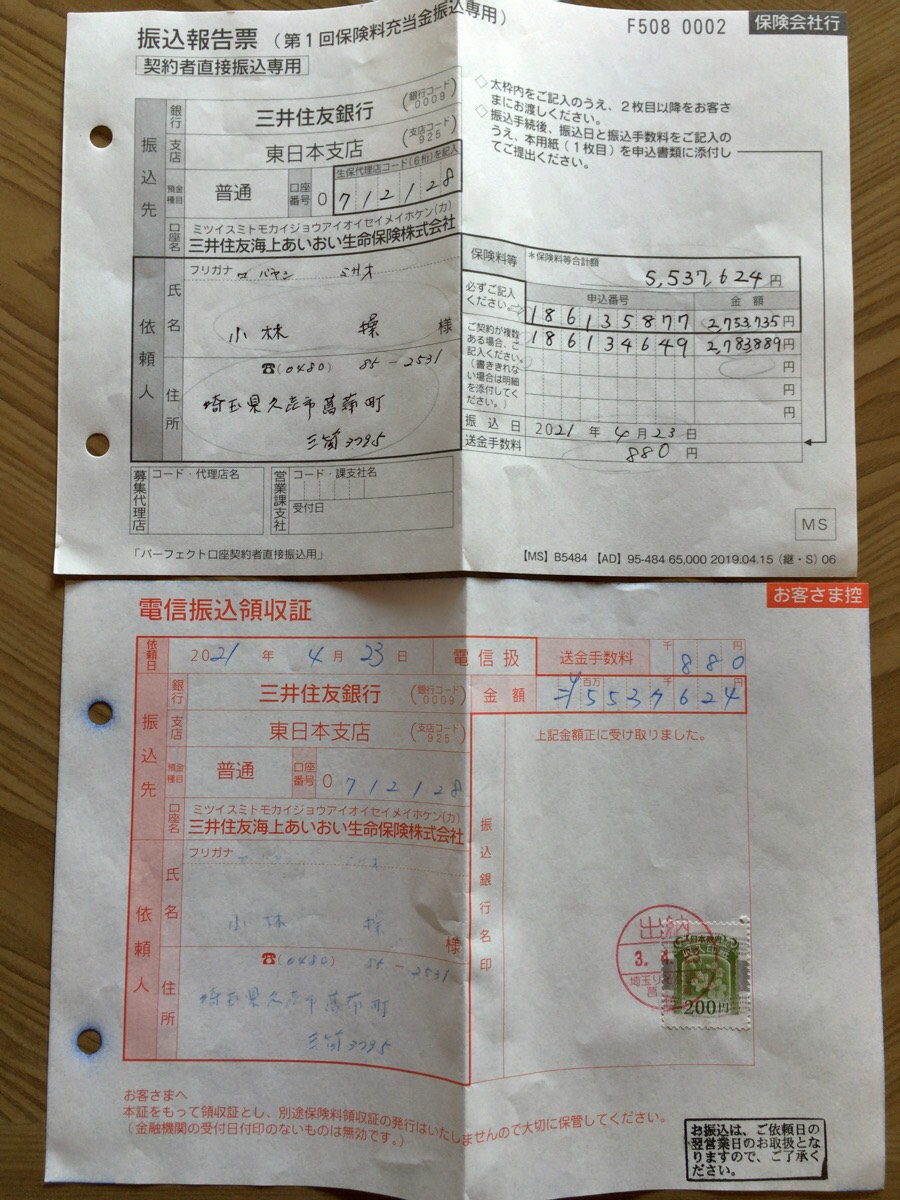 振込報告票（第1回保険料充当金振込専用）
F508 0002
保険会社行
契約者直接振込専用
◇太枠内をご記入のうえ、2枚目以降をお客さ
まにお渡しください。
◇振込手続後、振込日と振込手数料をご記入の
うえ、本用紙（1枚目）を申込書類に添付し
てご提出ください。
振込先
銀行
三井住友銀行
（銀行コード 0009）
支店
東日本支店
（支店コード 925）
預金種目
普通
口座番号
0
生保代理店コード（6桁）を記入
712128
口座名
ミツイスミトモカイジョウアイオイセイメイホケン(カ)
三井住友海上あいおい生命保険株式会社
依頼人
フリガナ
コバヤシ ミサオ
氏名
小林 操 様
住所
☎(0480) 85-2531
埼玉県久喜市菖蒲町
三箇3795
保険料等
*保険料等合計額
5,537,624円
必ずご記入
ください。
申込番号
金額
186135877
2,753,735円
ご契約が複数
ある場合、ご
記入ください。
（書ききれな
い場合は明細
を添付してく
ださい。）
186134649
2,783,889円
円
円
円
振込日
2021年4月23日
送金手数料
880円
募集代理店
コード・代理店名
営業課支社
コード・課支社名
受付日
MS
「パーフェクト口座契約者直接振込用」
【MS】B5484 【AD】95-484 65,000 2019.04.15（継・S）06
電信振込領収証
お客さま控
依頼日
2021年4月23日
電信扱
送金手数料
千
円
880
振込先
銀行
三井住友銀行
（銀行コード 0009）
金額
百万
千
円
5537624
支店
東日本支店
（支店コード 925）
上記金額正に受け取りました。
預金種目
普通
口座番号
0
712128
口座名
ミツイスミトモカイジョウアイオイセイメイホケン(カ)
三井住友海上あいおい生命保険株式会社
依頼人
フリガナ
コバヤシ ミサオ
氏名
小林 操 様
住所
☎(0480) 85-2531
埼玉県久喜市菖蒲町
三箇3795
振込銀行名印
出納
3.4.
埼玉り
菖
日本政府
200円
お客さまへ
本証をもって領収証とし、別途保険料領収証の発行はいたしませんので大切に保管してください。
（金融機関の受付日付印のないものは無効です。）
お振込は、ご依頼日の
翌営業日のお取扱とな
りますので、ご了承く
ださい。